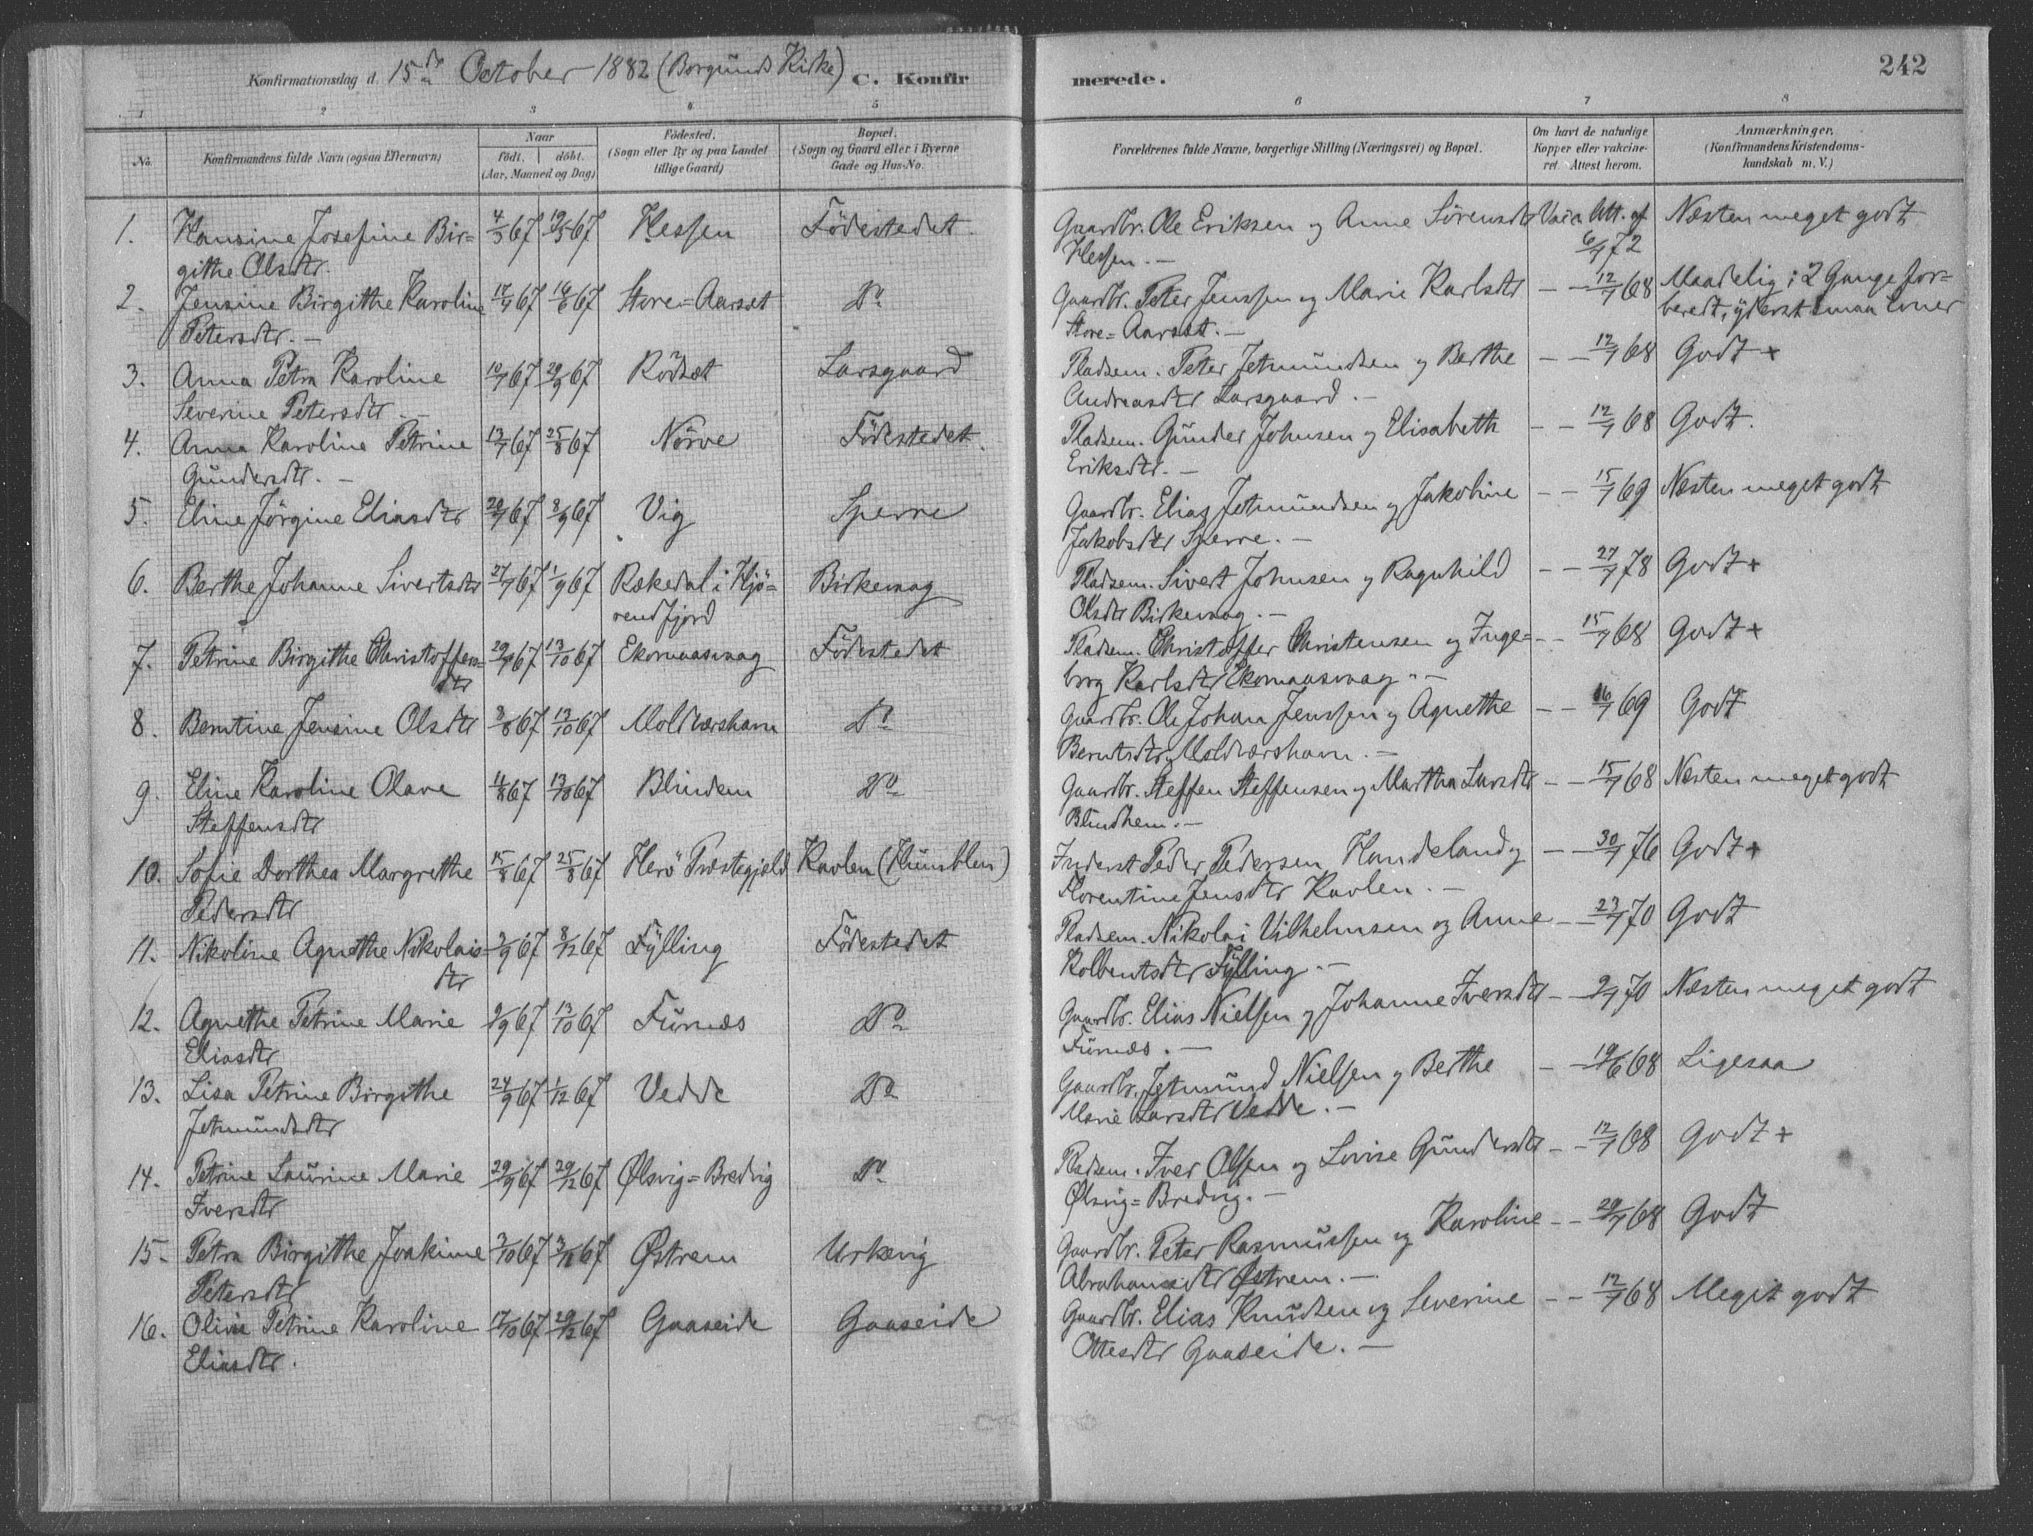 Konfirmationsdag d. 15de October 1882 (Borgunds Kirke) C. Konfirmerede. 242
1 2 3 4 5 6 7 8
No.
Konfirmandens fulde Navn (ogsaa Efternavn)
Naar
født. døbt.
(Aar, Maaned og Dag)
Fødested.
(Sogn eller By og paa Landet
tillige Gaard)
Bopæl.
(Sogn og Gaard eller i Byerne
Gade og Hus-No.
Forældrenes fulde Navne, borgerlige Stilling (Næringsvei) og Bopæl.
Om havt de naturlige
Kopper eller vakcine-
ret. Attest herom.
Anmærkninger.
(Konfirmandens Kristendoms-
kundskab m. V.)
1. Hansine Josefine Bir- 4/3 67 19/5 67 Hessen Födestedet. Gaardbr. Ole Eriksen og Anne Sörensdtr Vacc. Att. af Næsten meget godt
githe Olsdtr. Hessen. — 6/7 72
2. Jensine Birgithe Karoline 17/4 67 14/6 67 Store=Aarset Do Gaardbr. Peter Jenssen og Marie Karlsdtr — — 12/7 68 Maadelig; 2 Gange for-
Petersdtr. — Store=Aarset. — beredt, yderst smaa Evner
3. Anna Petra Karoline 10/7 67 29/9 67 Rödset Larsgaard Pladsem. Peter Jetmundsen og Berthe — — 12/7 68 Godt +
Severine Petersdtr. — Andreasdtr Larsgaard. —
4. Anna Karoline Petrine 13/7 67 25/8 67 Nörve Födestedet. Pladsem. Gunder Johnsen og Elisabeth — — 12/7 68 Godt.
Gundersdtr. — Eriksdtr. —
5. Eline Jörgine Eliasdtr 20/7 67 8/9 67 Vig Sperre Gaardbr. Elias Jetmundsen og Jakobine — — 15/7 69 Næsten meget godt
Jakobsdtr Sperre. —
6. Berthe Johanne Sivertsdtr 27/7 67 1/9 67 Rækedal i Hjö- Birkevaag Pladsem. Sivert Johnsen og Ragnhild — — 27/7 78 Godt +
rendfjord Olsdtr Birkevaag. —
7. Petrine Birgithe Christoffers- 29/7 67 13/10 67 Ekornaasvaag Födestedet Pladsem. Christoffer Christensen og Inge= — — 15/7 68 Godt +
dtr borg Karlsdtr Ekornaasvaag. —
8. Berntine Jensine Olsdtr 3/8 67 13/10 67 Moldværshavn Do Gaardbr. Ole Johan Jenssen og Agnethe — — 16/7 69 Godt
Berntsdtr Moldværshavn. —
9. Eline Karoline Olave 4/8 67 13/10 67 Blindem Do Gaardbr. Steffen Steffensen og Martha Larsdtr — — 15/7 68 Næsten meget godt
Steffensdtr Blindhem. —
10. Sofie Dorthea Margrethe 15/8 67 25/8 67 Herö Præstegjeld Kavlen (Humblen) Inderst Peder Pedersen Handeland og — — 30/7 76 Godt +
Pedersdtr Florentine Jensdtr Kavlen. —
11. Nikoline Agnethe Nikolais- 2/9 67 8/12 67 Fylling Födestedet Pladsem. Nikolai Vilhelmsen og Anne — — 23/7 70 Godt
dtr Kolbentsdtr Fylling. —
12. Agnethe Petrine Marie 9/9 67 13/10 67 Furnæs Do Gaardbr. Elias Nielsen og Johanne Iversdtr — — 9/7 70 Næsten meget godt
Eliasdtr Furnæs. —
13. Lisa Petrine Birgithe 24/9 67 1/12 67 Vedde Do Gaardbr. Jetmund Nielsen og Berthe — — 19/6 68 Ligesaa
Jetmundsdtr Marie Larsdtr Vedde. —
14. Petrine Laurine Marie 29/9 67 29/12 67 Ølsvig=Bredvig Do Pladsem. Iver Olsen og Lovise Gundersdtr — — 12/7 68 Godt +
Iversdtr Ølsvig=Bredvig. —
15. Petra Birgithe Joakime 3/10 67 3/11 67 Østrem Urkevig Gaardbr. Peter Rasmussen og Karoline — — 20/7 68 Godt
Petersdtr Abrahamsdtr Østrem. —
16. Olive Petrine Karoline 17/10 67 29/12 67 Gaaseide Gaaseide Gaardbr. Elias Knudsen og Severine — — 12/7 68 Meget godt
Eliasdtr. Ottesdtr Gaaseide. —